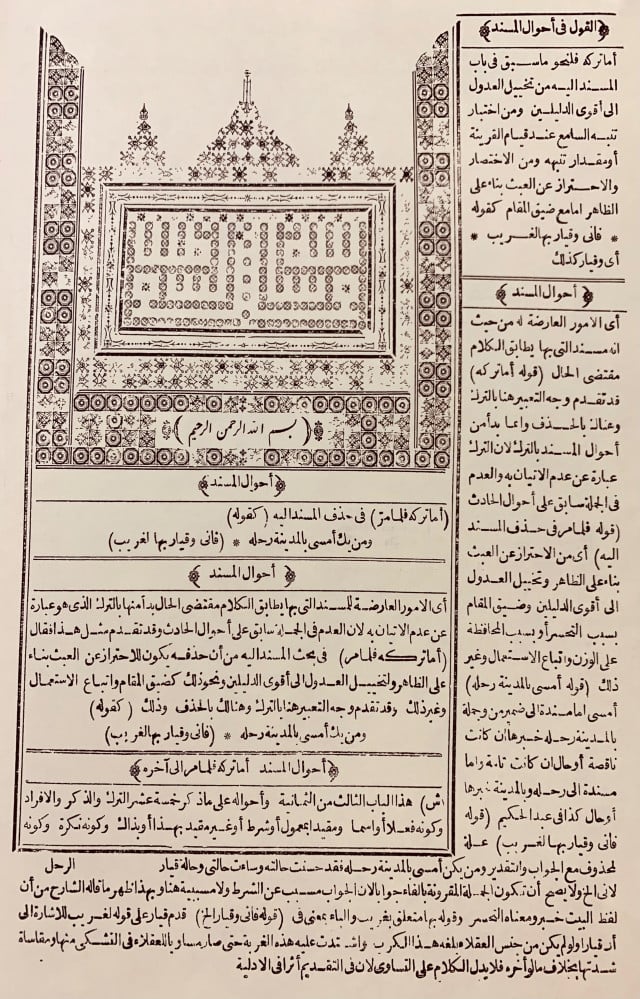 القول فى أحوال المسند
أما تركه فلنحو ما سبق فى باب
المسند اليه من تخييل العدول
الى أقوى الدليلين ومن اختبار
تنبه السامع عند قيام القرينة
أو مقدار تنبهه ومن الاختصار
والاحتراز عن العبث بناء على
الظاهر اما مع ضيق المقام كقوله
* فانى وقيار بها لغريب *
أى وقيار كذلك
أحوال المسند
أى الامور العارضة له من حيث
انه مسند التى بها يطابق الكلام
مقتضى الحال (قوله أما تركه)
قد تقدم وجه التعبير هنا بالترك
وهناك بالحذف وانما بدأ من
أحوال المسند بالترك لان الترك
عبارة عن عدم الاتيان به والعدم
فى الجملة سابق على أحوال الحادث
(قوله فلما مر فى حذف المسند
اليه) أى من الاحتراز عن العبث
بناء على الظاهر وتخييل العدول
الى أقوى الدليلين وضيق المقام
بسبب التحسر أو بسبب المحافظة
على الوزن واتباع الاستعمال وغير
ذلك (قوله أمسى بالمدينة رحله)
أمسى اما مسندة الى ضمير من وجملة
بالمدينة رحله خبرها ان كانت
ناقصة أو حال ان كانت تامة واما
مسندة الى رحله وبالمدينة خبرها
أو حال كذا فى عبد الحكيم (قوله
فانى وقيار بها لغريب) علة
بسم الله الرحمن الرحيم
أحوال المسند
(أما تركه فلما مر) فى حذف المسند اليه (كقوله)
ومن يك أمسى بالمدينة رحله * (فانى وقيار بها لغريب)
أحوال المسند
أى الامور العارضة للمسند التى بها يطابق الكلام مقتضى الحال بدأ منها بالترك الذى هو عبارة
عن عدم الاتيان به لان العدم فى الجملة سابق على أحوال الحادث وقد تقدم مثل هذا فقال
(أما تركه فلما مر) فى بحث المسند اليه من أن حذفه يكون للاحتراز عن العبث بناء
على الظاهر ولتخييل العدول الى أقوى الدليلين ونحو ذلك كضيق المقام واتباع الاستعمال
وغير ذلك وقد تقدم وجه التعبير هنا بالترك وهنالك بالحذف وذلك (كقوله)
ومن يك أمسى بالمدينة رحله * (فانى وقيار بها لغريب)
أحوال المسند أما تركه فلما مر الى آخره
(ش) هذا الباب الثالث من الثمانية وأحواله على ما ذكر خمسة عشر الترك والذكر والافراد
وكونه فعلا أو اسما ومقيدا بمعمول أو شرط أو غير مقيد بهذا أو بذاك وكونه نكرة وكونه
لمحذوف مع الجواب والتقدير ومن يكن أمسى بالمدينة رحله فقد حسنت حالته وساءت حالتى وحالة قيار الرحل
لانى الخ ولا يصح أن تكون الجملة المقرونة بالفاء جوابا لان الجواب مسبب عن الشرط ولا مسببية هنا وبهذا ظهر ما قاله الشارح من أن
لفظ البيت خبر ومعناه التحسر وقوله بها متعلق بغريب والباء بمعنى فى (قوله فانى وقيار الخ) قدم قيار على قوله لغريب للاشارة الى
أن قيار ولو لم يكن من جنس العقلاء بلغه هذا الكرب واشتدت عليه هذه الغربة حتى صار مساويا للعقلاء فى التشكى منها ومقاساة
شدتها بخلاف ما لو أخره فلا يدل الكلام على التساوى لان فى التقديم أثرا فى الادلية